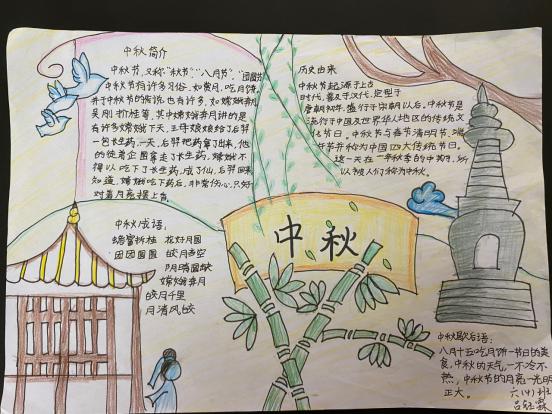 中秋简介
中秋节,又称"秋节""八月节"、"团圆节"
中秋节有许多习俗,如赏月,吃月饼,
关于中秋节的传说也有许多,如嫦娥奔月
吴刚伐桂等,其中嫦娥奔月讲的是
有许多嫦娥下天,王母娘娘给了后羿
一包长生药,一天,后羿把药拿了出来,他
的徒弟企图拿走了长生药,嫦娥不
得以吃下了长生药,成了仙,后羿回来
知道,嫦娥吃下药后,非常伤心,只好
对着月亮摆上
历史由来
中秋节起源于上古
时代,普及于汉代,定型于
唐朝初年,盛行于宋朝以后。中秋是
流行于中国及世界华人地区的传统文
化节日。中秋节与春节清明节、端
午节并称为中国四大传统节日。
这一天在一年秋季的中期,所
以被人们称为中秋。
中秋成语:
蟾宫折桂 花好月圆
团团圆圆 皎月当空
阴晴圆缺
嫦娥奔月
皎月千里
月清风皎
中秋
中秋歇后语:
八月十五吃月饼一节日的美
食,中秋的天气,一不冷不
热,中秋节的月亮一光明
正大。
六(4)班